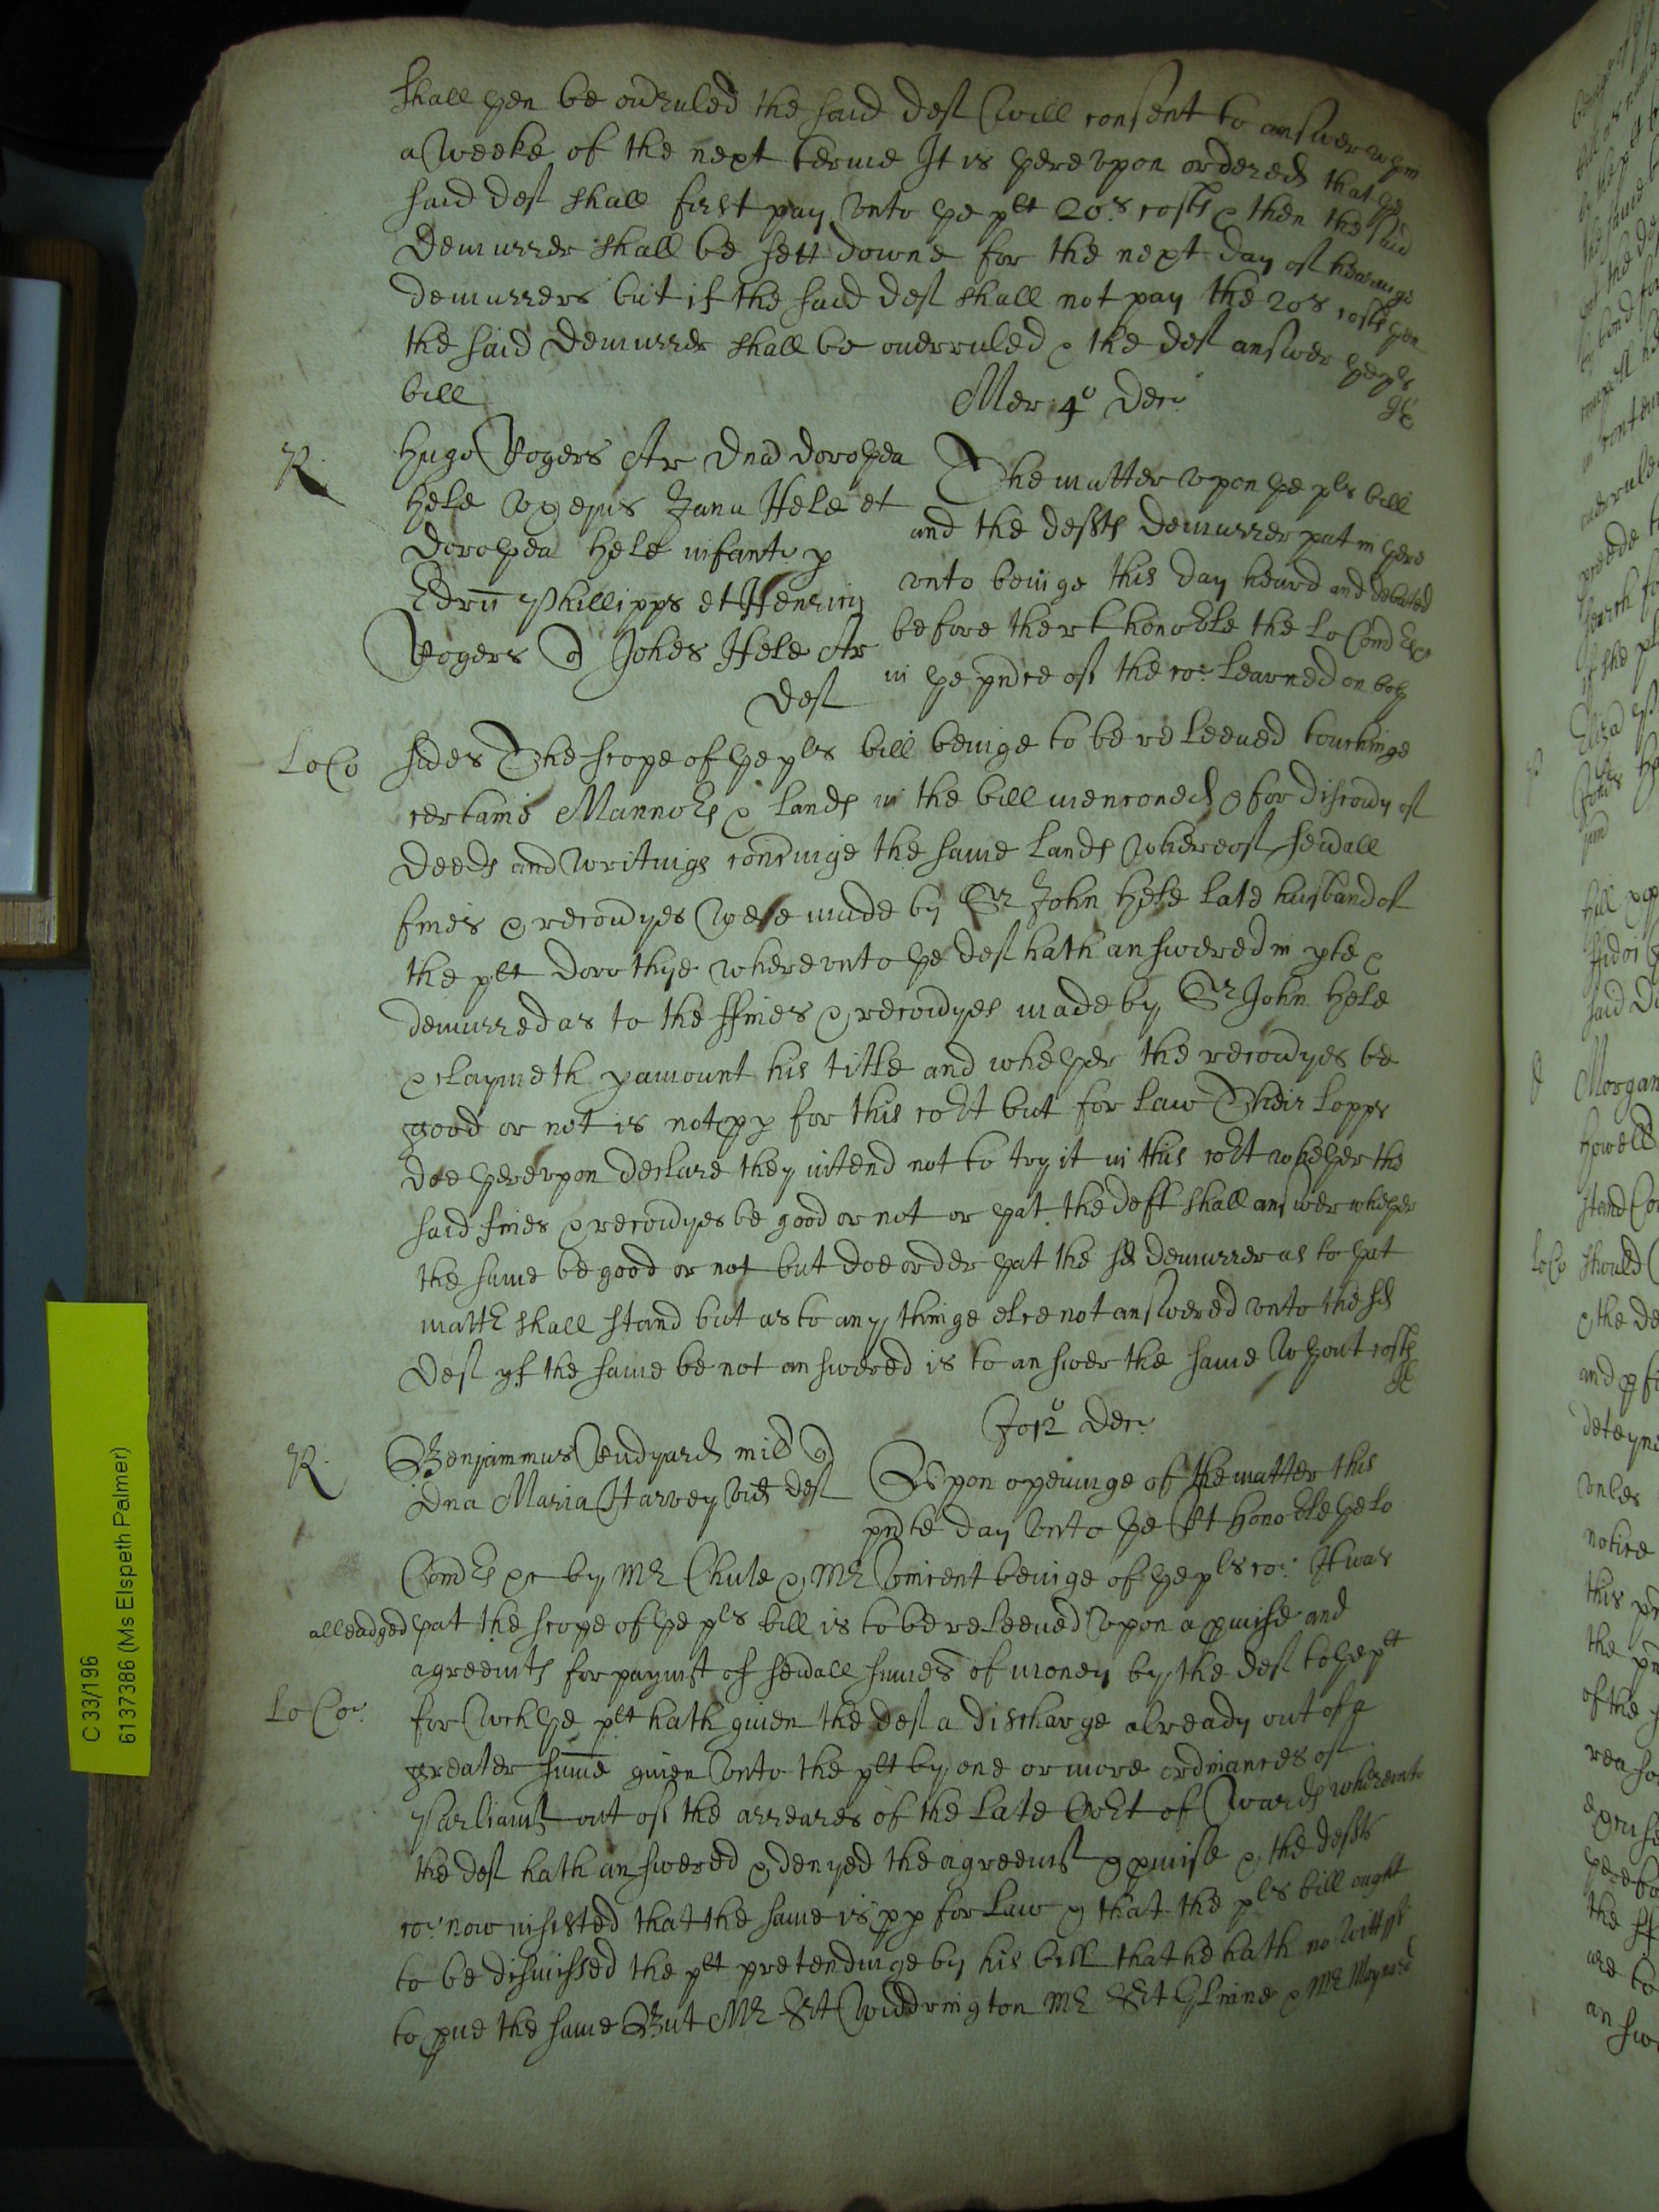 shall then be ouerruled the said deft will consent to answer wthin
a weeke of the next terme It is therevpon ordered that the
said deft shall first pay vnto the plt 20s costs & then the said
Demurrer shall be sett downe for the next day of hearinge
demurrers but if the said deft shall not pay the 20s costs then
the said Demurrer shall be ouerruled & the deft answer the pls
bill
Mer 4o Decr
R
Hugo Rogers Ar Dna Dorothea
Hele vx eius Jana Hele et
Dorothea Hele infant p
Edrū Phillipps et Henricū
Rogers Johes Hele Ar
Deft
The matter vpon the pls bill
and the defts Demurrer put in there
vnto beinge this day heard and debated
before the rt honoble the Lo Comrs
in the pnce of the co: Learned on both
LoCo
sides The scope of the pls bill beinge to be releeued touchinge
certaine Mannors & lands in the bill menconed & for discouy of
Deeds and writings concninge the same lands whereof seuall
fines & recouyes were made by Sr John Hele late husband of
the plt Dorothye wherevnto the deft hath answered in pte &
demurred as to the ffines & recouyes made by Sr John Hele
& claymeth pamount his title and whether the recouyes be
good or not is not pp for this cort but for law Their Lopps
doe therevpon declare they intend not to try it in this cort whether the
said fines & recouyes be good or not or that the deft shall answer whether
the same be good or not but doe order that the sd demurrer as to that
mattr shall stand but as to any thinge else not answered vnto the sd
Deft yf the same be not answered is to answer the same wthout costs
Jo 12o Decr
R
Beniaminus Rudyard mil
Dna Maria Harvey vid deft
Vpon openinge of the matter this
pnte day vnto the Rt Honoble the Lo
Comrs &c by Mr Chute & Mr Vincent beinge of the pls co: It was
alleadged that the scope of the pls bill is to be releeued vpon a pmise and
agreemts for paymt of seuall sumes of money by the deft to the plt
Lo Cor
for wch the plt hath giuen the deft a discharge already out of a
greater sume giuen vnto the plt by one or more ordinances of
Parliamt out of the arreares of the late Cort of Wards wherevnto
the deft hath answered & denyed the agreemt & pmise & the defts
co: now insisted that the same is pp for law & that the pls bill ought
to be dismissed the plt pretendinge by his bill that he hath no wittnes
to pue the same But Mr Srt Widdrington Mr Srt Glinne & Mr Maynard
C 33/196
6137386 (Ms Elspeth Palmer)
Morgan
Howell
LoCo
should
& the de
and
vnles
notice
this
the
of the
are to